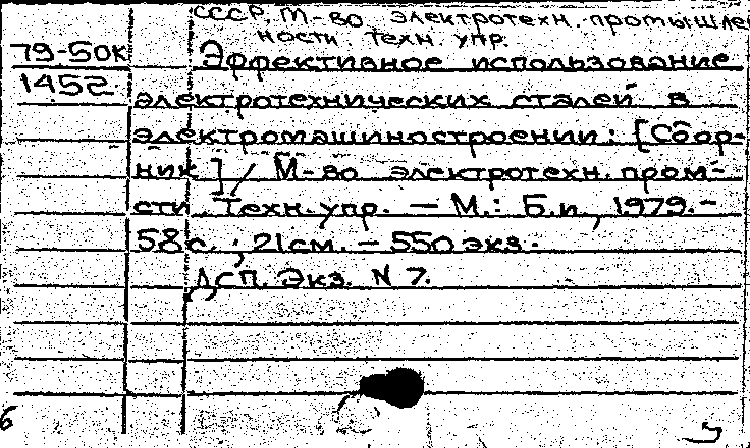 СССР. М-во электротехн. промышлен
ности. Техн. упр.
79-50К
1452
Эффективное использование
электротехнических сталей в
электромашиностроении: [Сбор-
ник] / М-во электротехн. пром-
сти. Техн. упр. — М.: Б.и., 1979.-
58 с.; 21 см. - 550 экз.
ДСП. Экз. N 7.